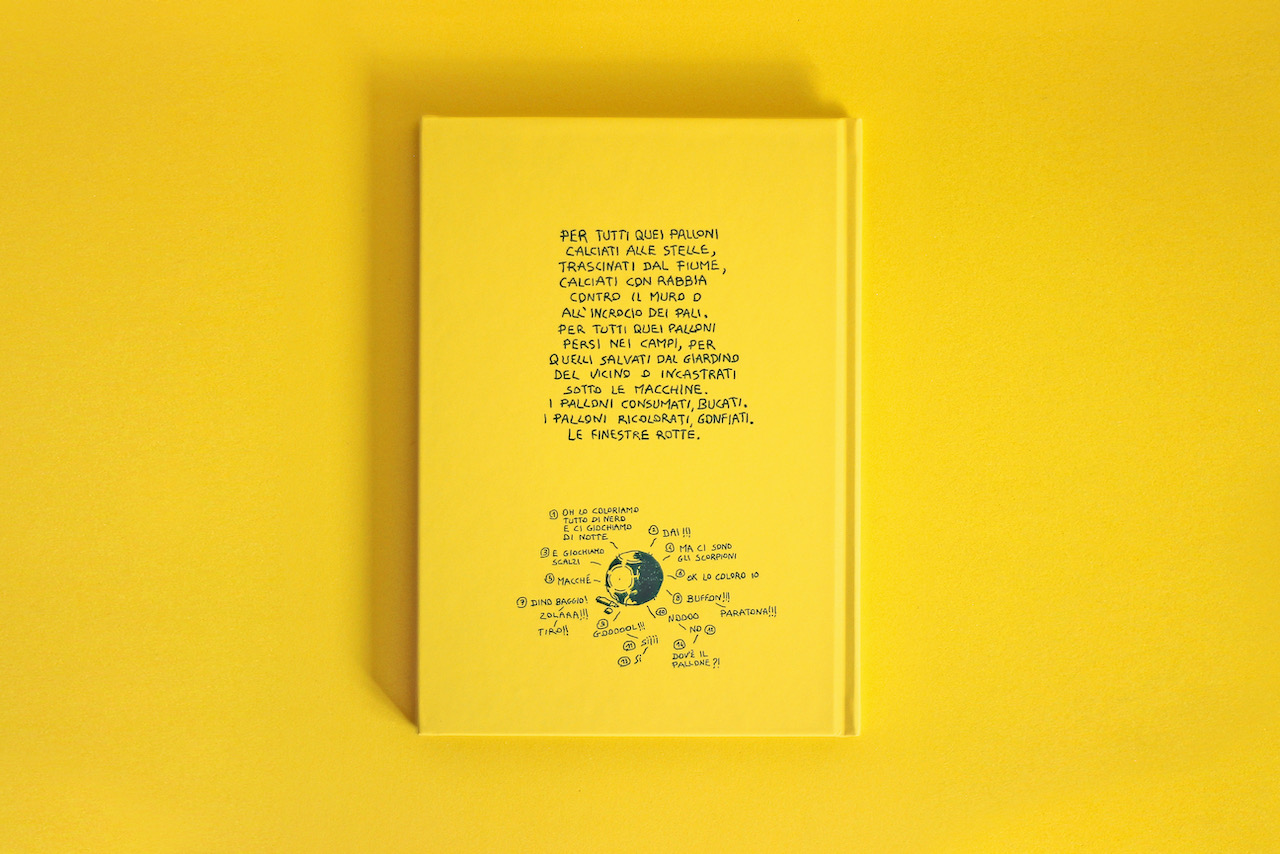 PER TUTTI QUEI PALLONI
CALCIATI ALLE STELLE,
TRASCINATI DAL FIUME,
CALCIATI CON RABBIA
CONTRO IL MURO O
ALL'INCROCIO DEI PALI.
PER TUTTI QUEI PALLONI
PERSI NEI CAMPI, PER
QUELLI SALVATI DAL GIARDINO
DEL VICINO O INCASTRATI
SOTTO LE MACCHINE.
I PALLONI CONSUMATI, BUCATI.
I PALLONI RICOLORATI, GONFIATI.
LE FINESTRE ROTTE.
1 OH LO COLORIAMO
TUTTO DI NERO
E CI GIOCHIAMO
DI NOTTE
2 DAI!!!
3 E GIOCHIAMO
SCALZI
4 MA CI SONO
GLI SCORPIONI
5 MACCHÉ
6 OK LO COLORO IO
7 DINO BAGGIO!
ZOLAAA!!!
TIRO!!
8 BUFFON!!!
PARATONA!!!
9 GOOOOOL!!!
10 NOOOO
11 SÌÌÌÌ
NO 12
13 SÌ
14 DOV'È IL
PALLONE?!